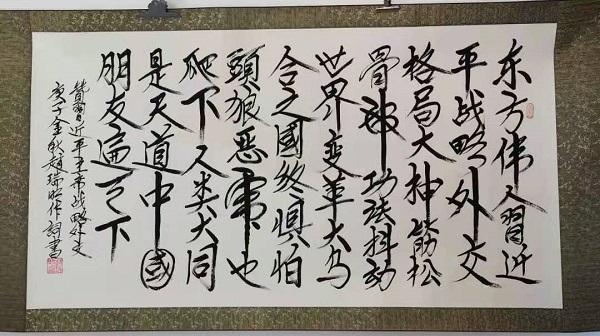 东方伟人習近
平战略外交
格局大抽筋松
骨部功法抖动
世界变革大乌
合之國終惧怕
頭狼惡霸也
爬下人类大同
是天道中國
朋友遍天下
贊習近平主席战略外交
庚子金秋趙瑞 作詞書